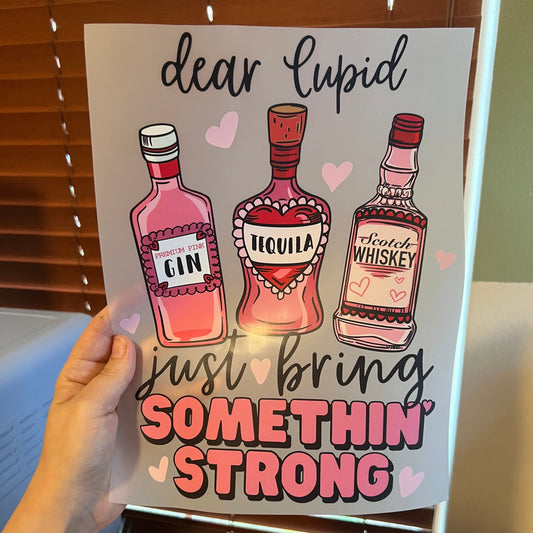 dear Cupid
PREMIUM PINK
GIN
TEQUILA
Scotch
WHISKEY
just bring
SOMETHIN'
STRONG